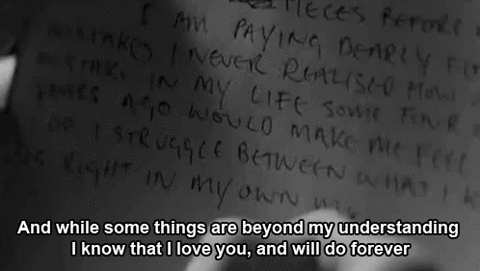 PIECES BEFORE
I AM PAYING DEARLY FOR
MISTAKES I NEVER REALISED HOW
MISTAKE IN MY LIFE SOME FOUR
YEARS AGO WOULD MAKE ME FEEL
I STRUGGLE BETWEEN WHAT I
RIGHT IN MY OWN
And while some things are beyond my understanding
I know that I love you, and will do forever